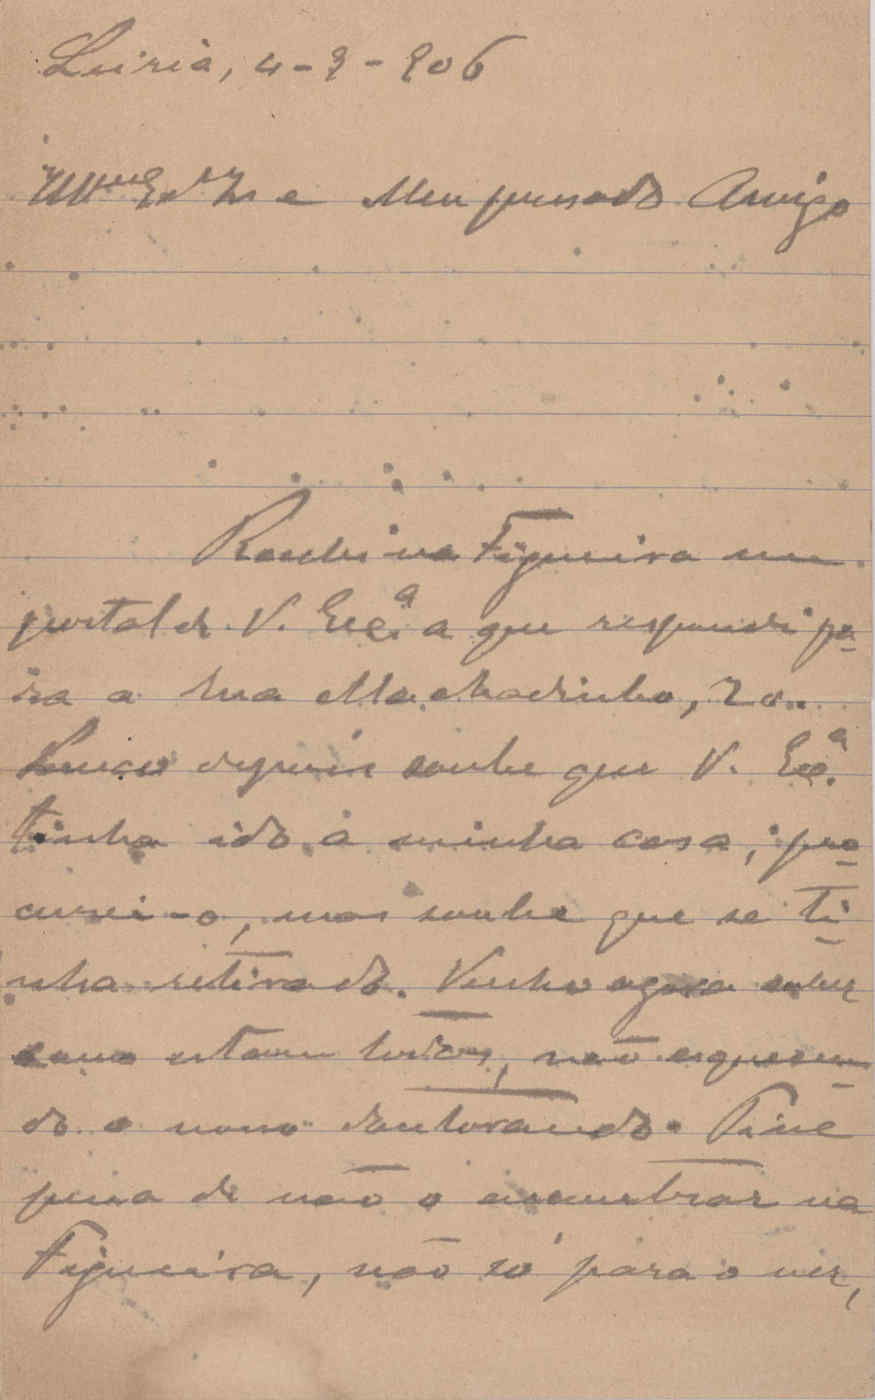 Leiria, 4-9-906
Illmo Exmo Sr e Meu presado Amigo
Recebi na Figueira um
postal de V. Exc.a a que respondi pa-
ra a rua Machadinho, 20..
Pouco depois soube que V. Exc.a
tinha ido á minha casa; pro-
curei-o, mas soube que se ti-
nha retirado. Venho agora saber
como estam todos, não esquecen-
do o novo doutorando. Tive
pena de não o encontrar na
Figueira, não só para o ver,